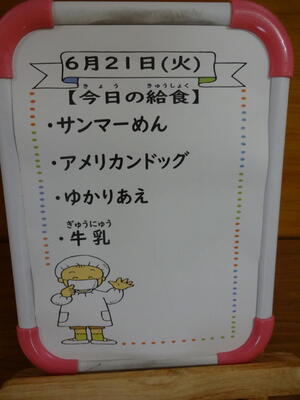 6月21日(火)
きょう きゅうしょく
【今日の給食】
・サンマーめん
・アメリカンドッグ
・ゆかりあえ
ぎゅうにゅう
・牛乳